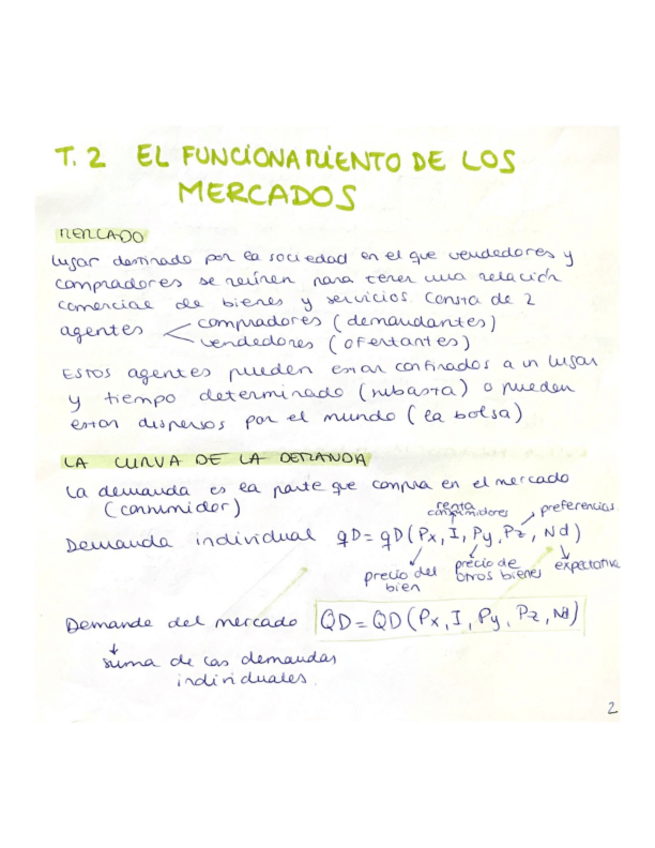 T. 2 EL FUNCIONAMIENTO DE LOS
MERCADOS
MERCADO
lugar destinado por la sociedad en el que vendedores y
compradores se reúnen para tener una relación
comercial de bienes y servicios. Consta de 2
agentes
compradores (demandantes)
vendedores (ofertantes)
Estos agentes pueden estar confinados a un lugar
y tiempo determinado (subasta) o pueden
estar dispersos por el mundo (la bolsa)
LA CURVA DE LA DEMANDA
La demanda es la parte que compra en el mercado
(consumidor)
renta
consumidores
preferencias
Demanda individual qD = qD (Px, I, Py, Pz, Nd)
precio del
bien
precio de
otros bienes
expectativa
Demande del mercado QD = QD (Px, I, Py, Pz, Nd)
suma de las demandas
individuales.
2